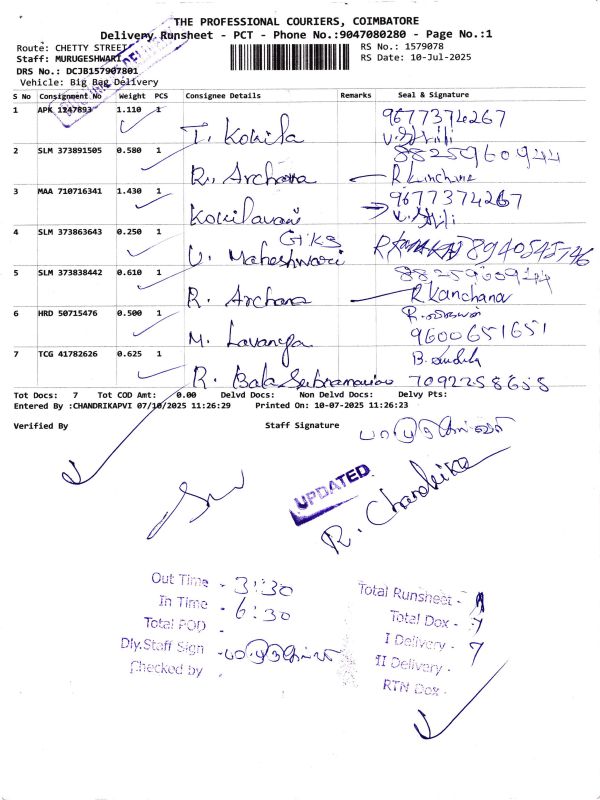 THE PROFESSIONAL COURIERS, COIMBATORE
Delivery Runsheet - PCT - Phone No.:9047080280 - Page No.:1
Route: CHETTY STREET
RS No.: 1579078
Staff: MURUGESHWARI
RS Date: 10-Jul-2025
DRS No.: DCJB157907801
Vehicle: Big Bag Delivery
S No Consignment No Weight PCS Consignee Details Remarks Seal & Signature
1 APK 1247893 1.110 1 T. Kokila 9677374267
2 SLM 373891505 0.580 1 R. Archana 8825960944
R Kanchana
3 MAA 710716341 1.430 1 Kokilavani 9677374267
4 SLM 373863643 0.250 1 U. Maheshwari 8940545746
5 SLM 373838442 0.610 1 R. Archana 8825960944
R Kanchana
6 HRD 50715476 0.500 1 M. Lavanya 9600651651
7 TCG 41782626 0.625 1 R. Bala Subramanian 7092258658
Tot Docs: 7 Tot COD Amt: 0.00 Delvd Docs: Non Delvd Docs: Delvy Pts:
Entered By :CHANDRIKAPVI 07/10/2025 11:26:29 Printed On: 10-07-2025 11:26:23
Verified By Staff Signature
UPDATED
R. Chandrika
Out Time - 3:30
In Time - 6:30
Total POD -
Dly.Staff Sign -
Checked by -
Total Runsheet -
Total Dox - 7
I Delivery - 7
II Delivery -
RTN Dox -